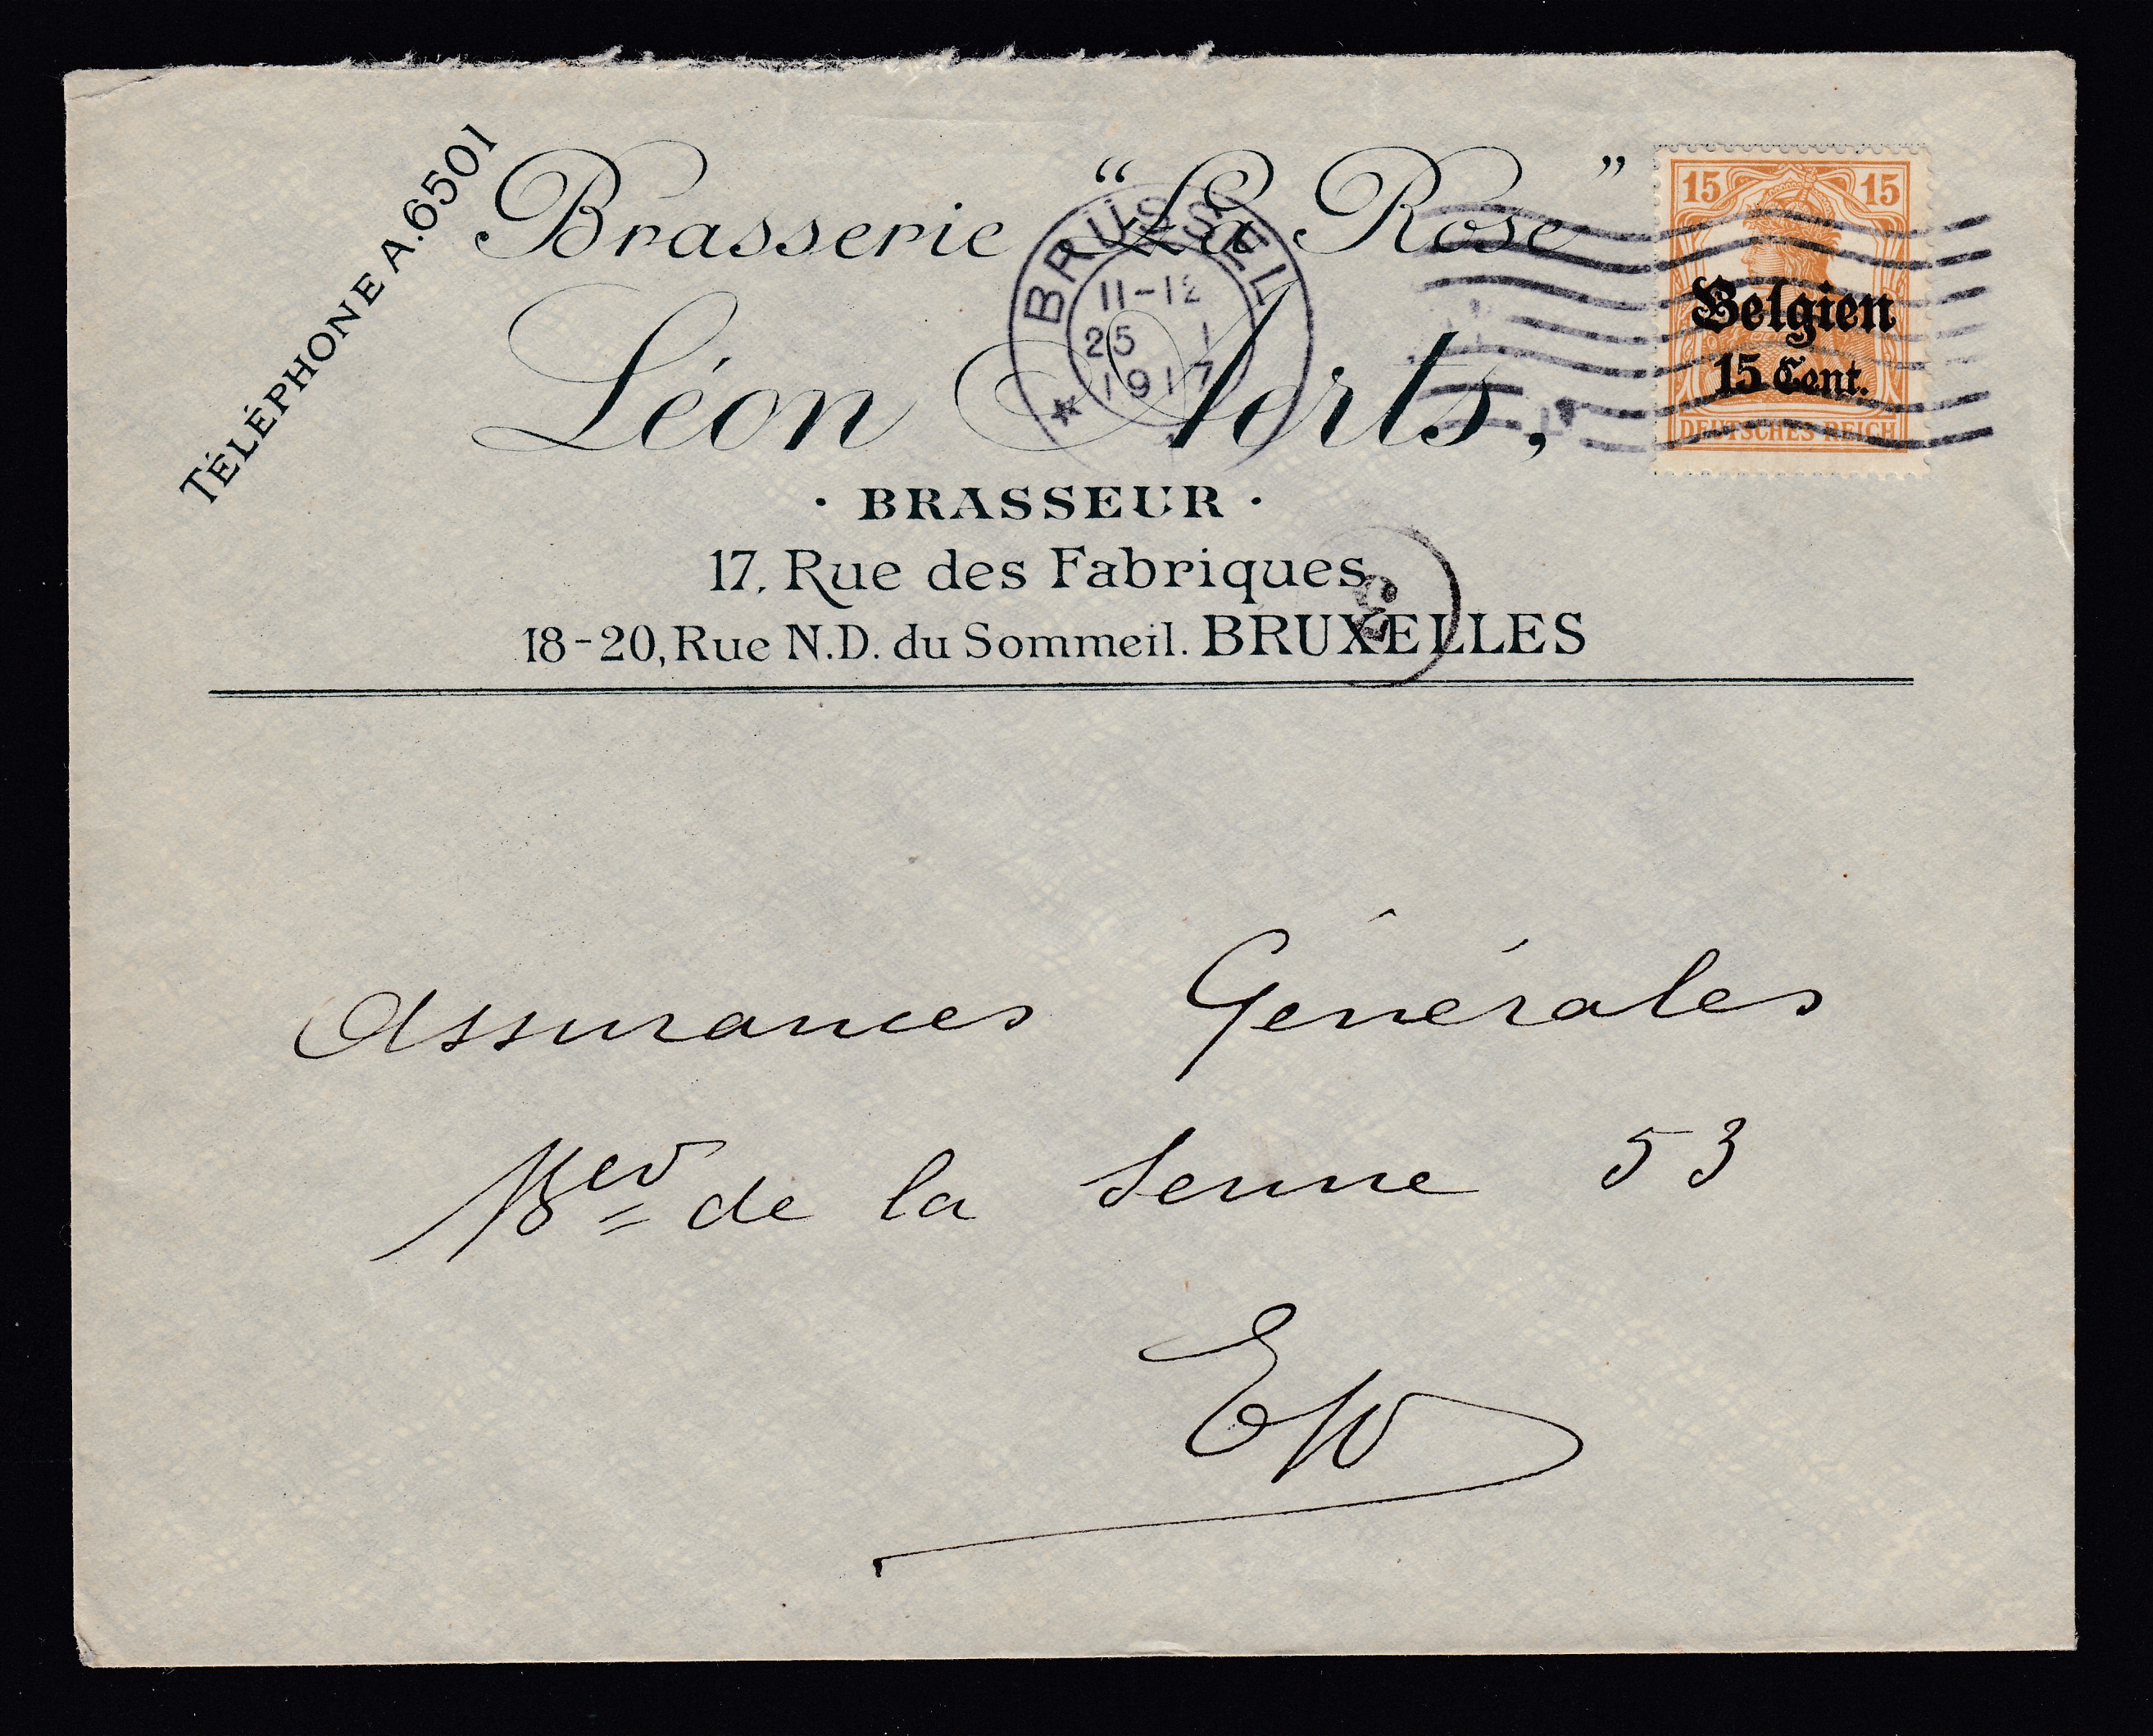 TÉLÉPHONE A.6501
Brasserie "La Rose"
Léon Aerts,
· BRASSEUR ·
17, Rue des Fabriques,
18-20, Rue N.D. du Sommeil. BRUXELLES
BRÜSSEL
11-12
25 1
1917
15 15
Belgien
15 Cent.
DEUTSCHES REICH
3
Assurances Générales
de la Senne 53
EW